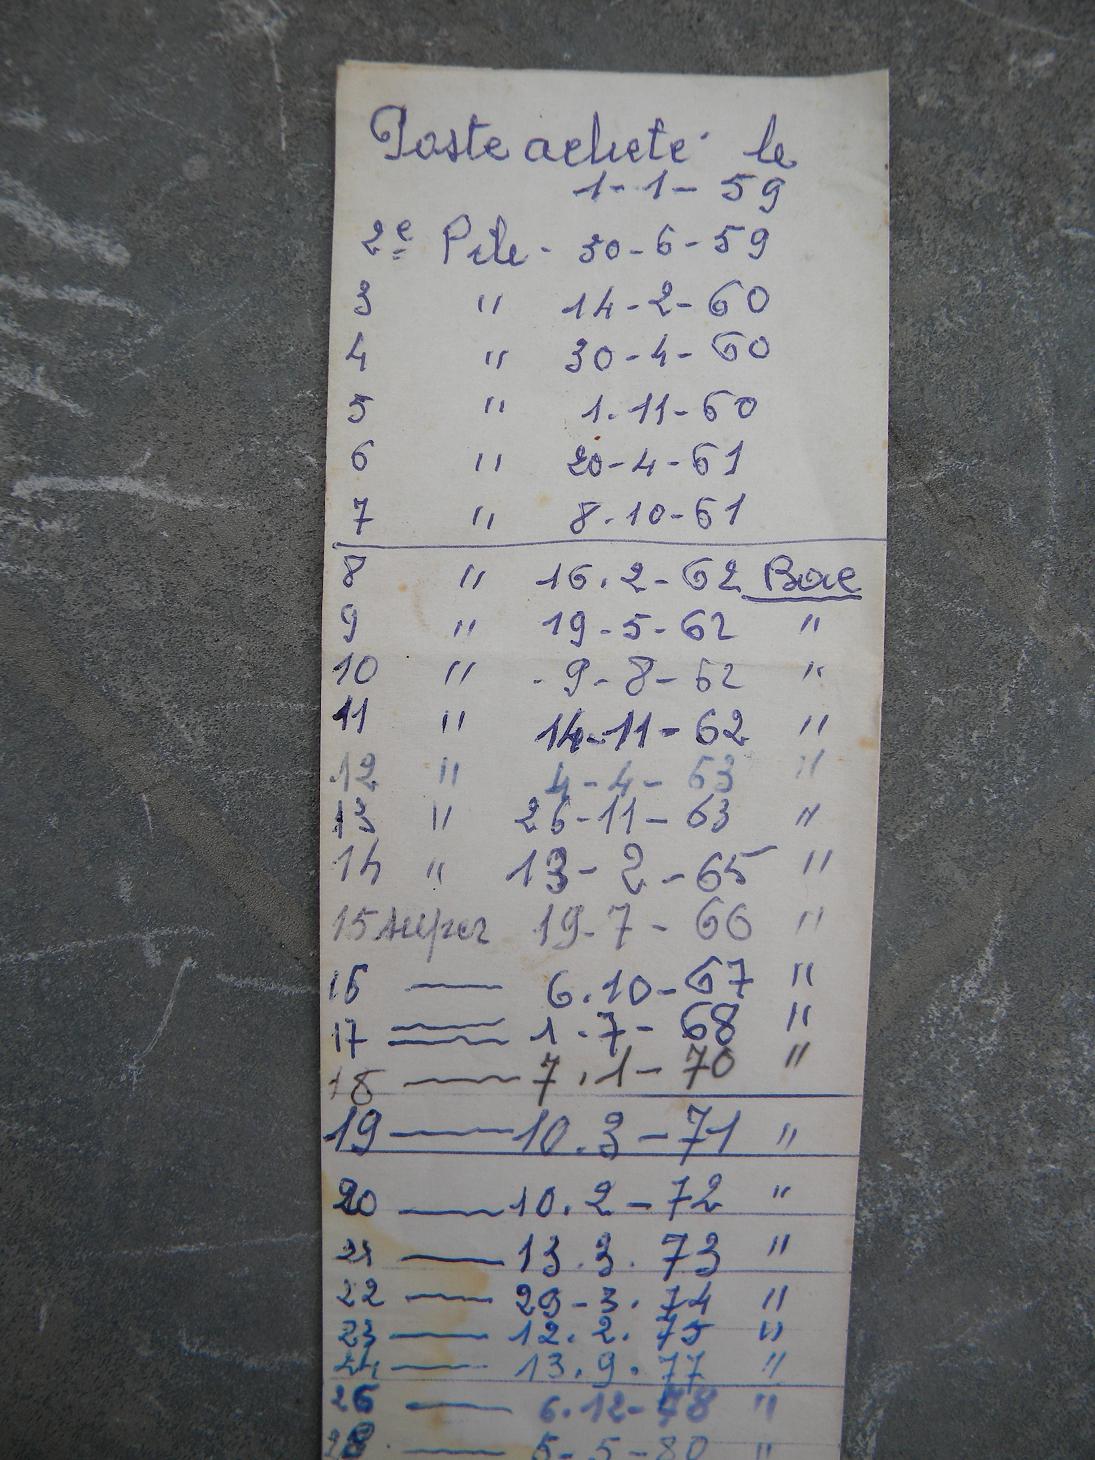 Poste acheté le
1-1-59
2e Pile - 30-6-59
3 " 14-2-60
4 " 30-4-60
5 " 1.11-60
6 " 20-4-61
7 " 8.10-61
8 " 16.2-62
9 " 19-5-62 "
10 " -9-8-62 "
11 " 14-11-62 "
12 " 4-4-63 "
13 " 26-11-63 "
14 " 13-2-65 "
15 super 19.7-66 "
16 — 6.10-67 "
17 — 1.7-68 "
18 — 7.1-70 "
19 — 10.3-71 "
20 — 10.2-72 "
21 — 13.3.73 "
22 — 29-3.74 "
23 — 12.2.75 "
24 — 13.9.77 "
— 6.12-78 "
— 5-5-80 "